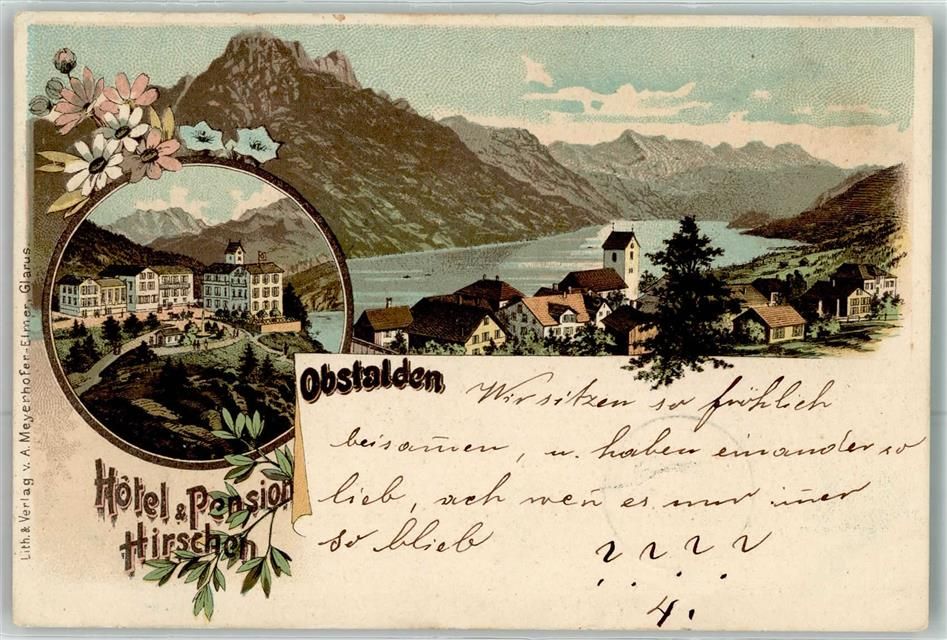 Obstalden
Wir sitzen so fröhlich
beisam̄en, u. haben einander so
lieb, ach wen̄ es nur im̄er
so blieb
? ? ? ?
4.
Hôtel & Pension
Hirschen
Lith. & Verlag v. A. Meyerhofer-Elmer Glarus